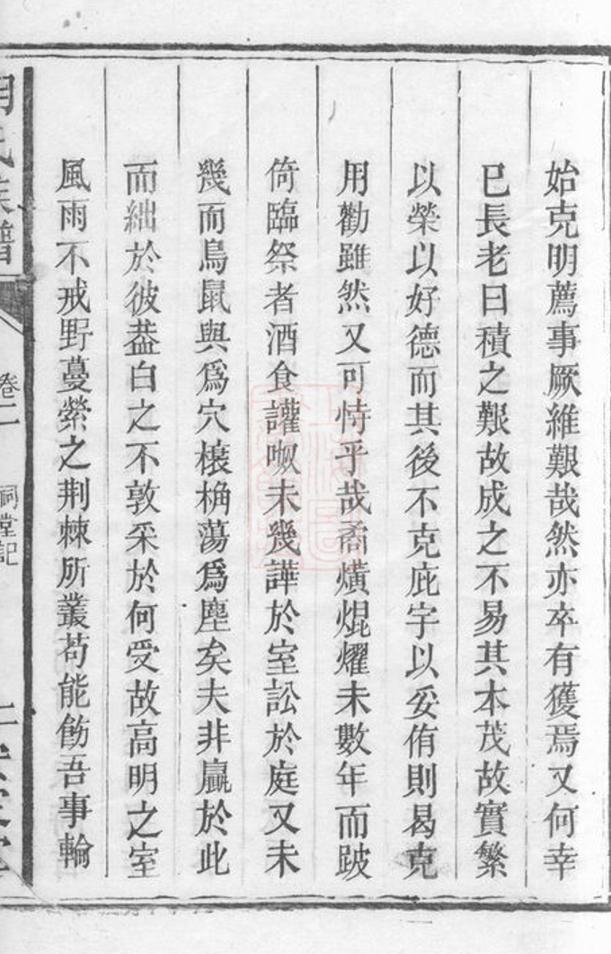 始克明薦事厥維艱哉然亦卒有獲焉又何幸
已長老曰積之艱故成之不易其本茂故實繁
以榮以好德而其後不克庇宇以妥侑則曷克
用勸雖然又可恃乎哉矞熿焜燿未數年而跛
倚臨祭者酒食讙呶未幾譁於室訟於庭又未
幾而鳥鼠與爲穴榱桷蕩爲塵矣夫非贏於此
而絀於彼葢白之不敦采於何受故高明之室
風雨不戒野蔓縈之荆棘所叢苟能飭吾事輪
氏族譜
卷二
祠堂記